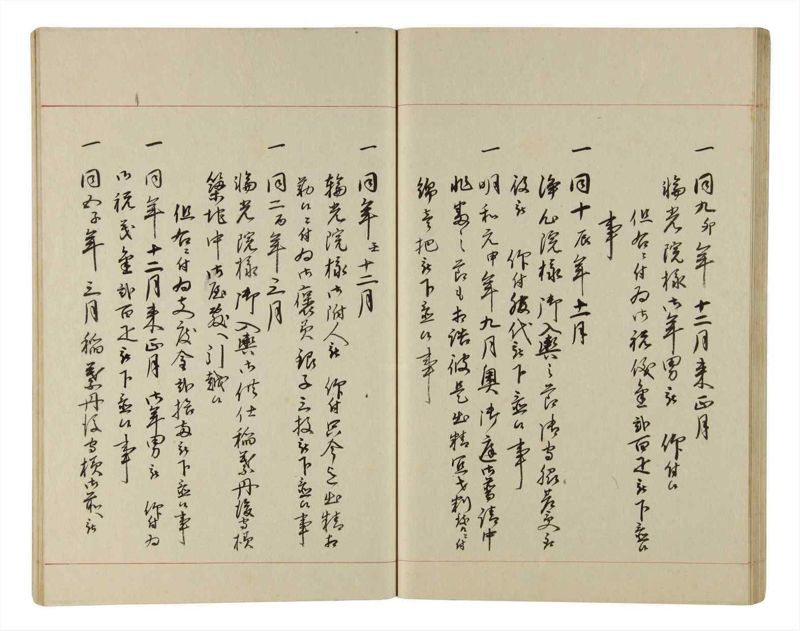 一 同九卯年 十二月来正月
瑜光院様御年男被 仰付候
但右ニ付為御祝儀金弐百疋被下置候
事
一 同十辰年十一月
浄心院様御入輿之節御守脇差交被
仰付 代被下置候事
一 明和元申年九月奥御庭御普請中
節も相詰彼是出精 ニ付
綿壱把被下置候事
一 同年 十二月
瑜光院様御附人被 仰付只今迄出精相
勤候ニ付為御褒美銀子三枚被下置候事
一 同二酉年三月
瑜光院様御入輿御供仕稲葉丹後守様
築地中御屋敷へ引越候
但右ニ付為支度金弐拾両被下置候事
一 同年十二月来正月御年男被 仰付為
御祝義金弐百疋被下置候事
一 同 年三月稲葉丹後守様御前被